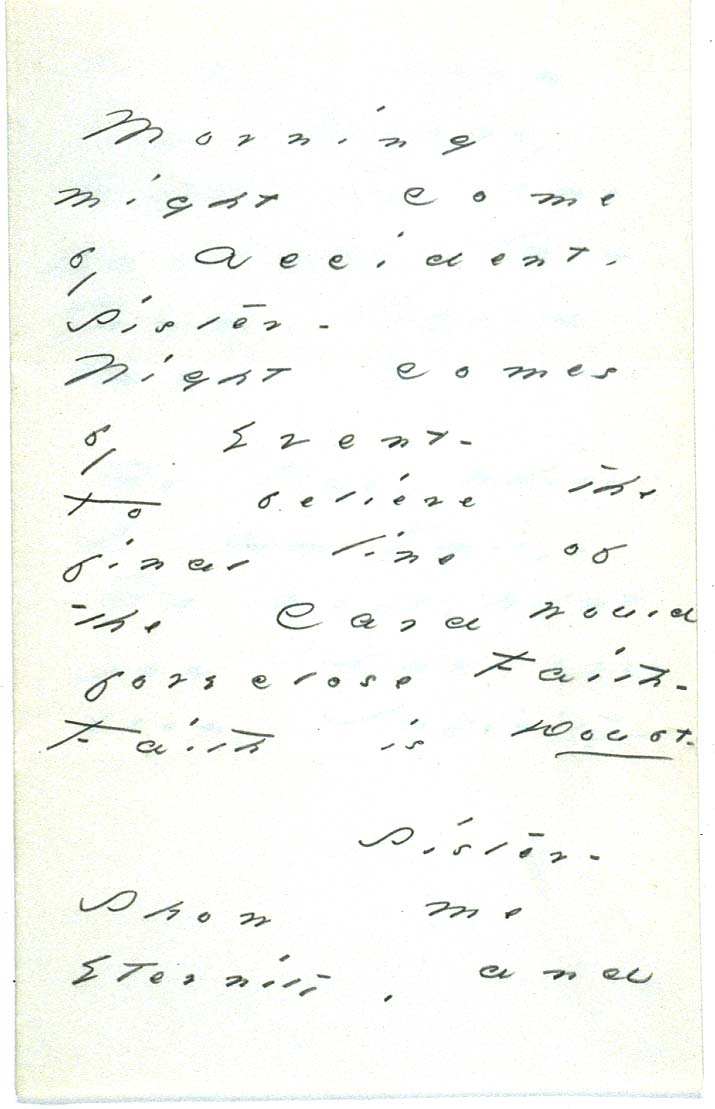 Morning
might come
by Accident.
Sister -
Night comes
by Event -
To believe the
final line of
the Card would
foreclose Faith -
Faith is Doubt.
Sister -
Show me
Eternity, and